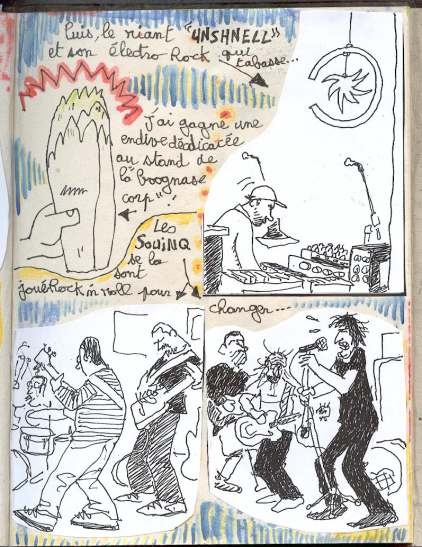 Puis, le riant "UNSHNELL"
et son électro Rock qui
tabasse...
J'ai gagné une
endive dédicacée
au stand de
la "boognase
corp"!
Les
SOUINQ
se la
sont
jouéRock in roll pour
changer...